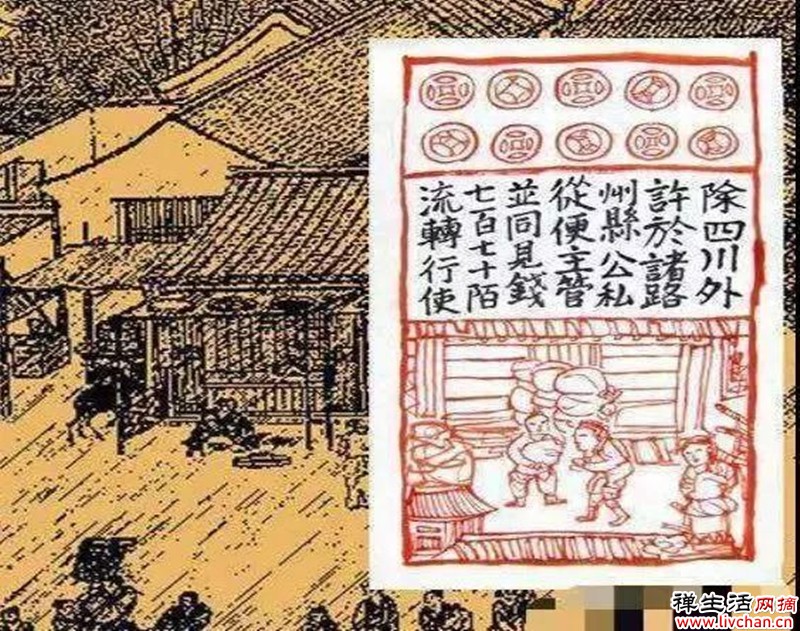 除四川外
許於諸路
州縣公私
從便主管
並同見錢
七百七十陌
流轉行使
禅生活网摘
www.livchan.cn